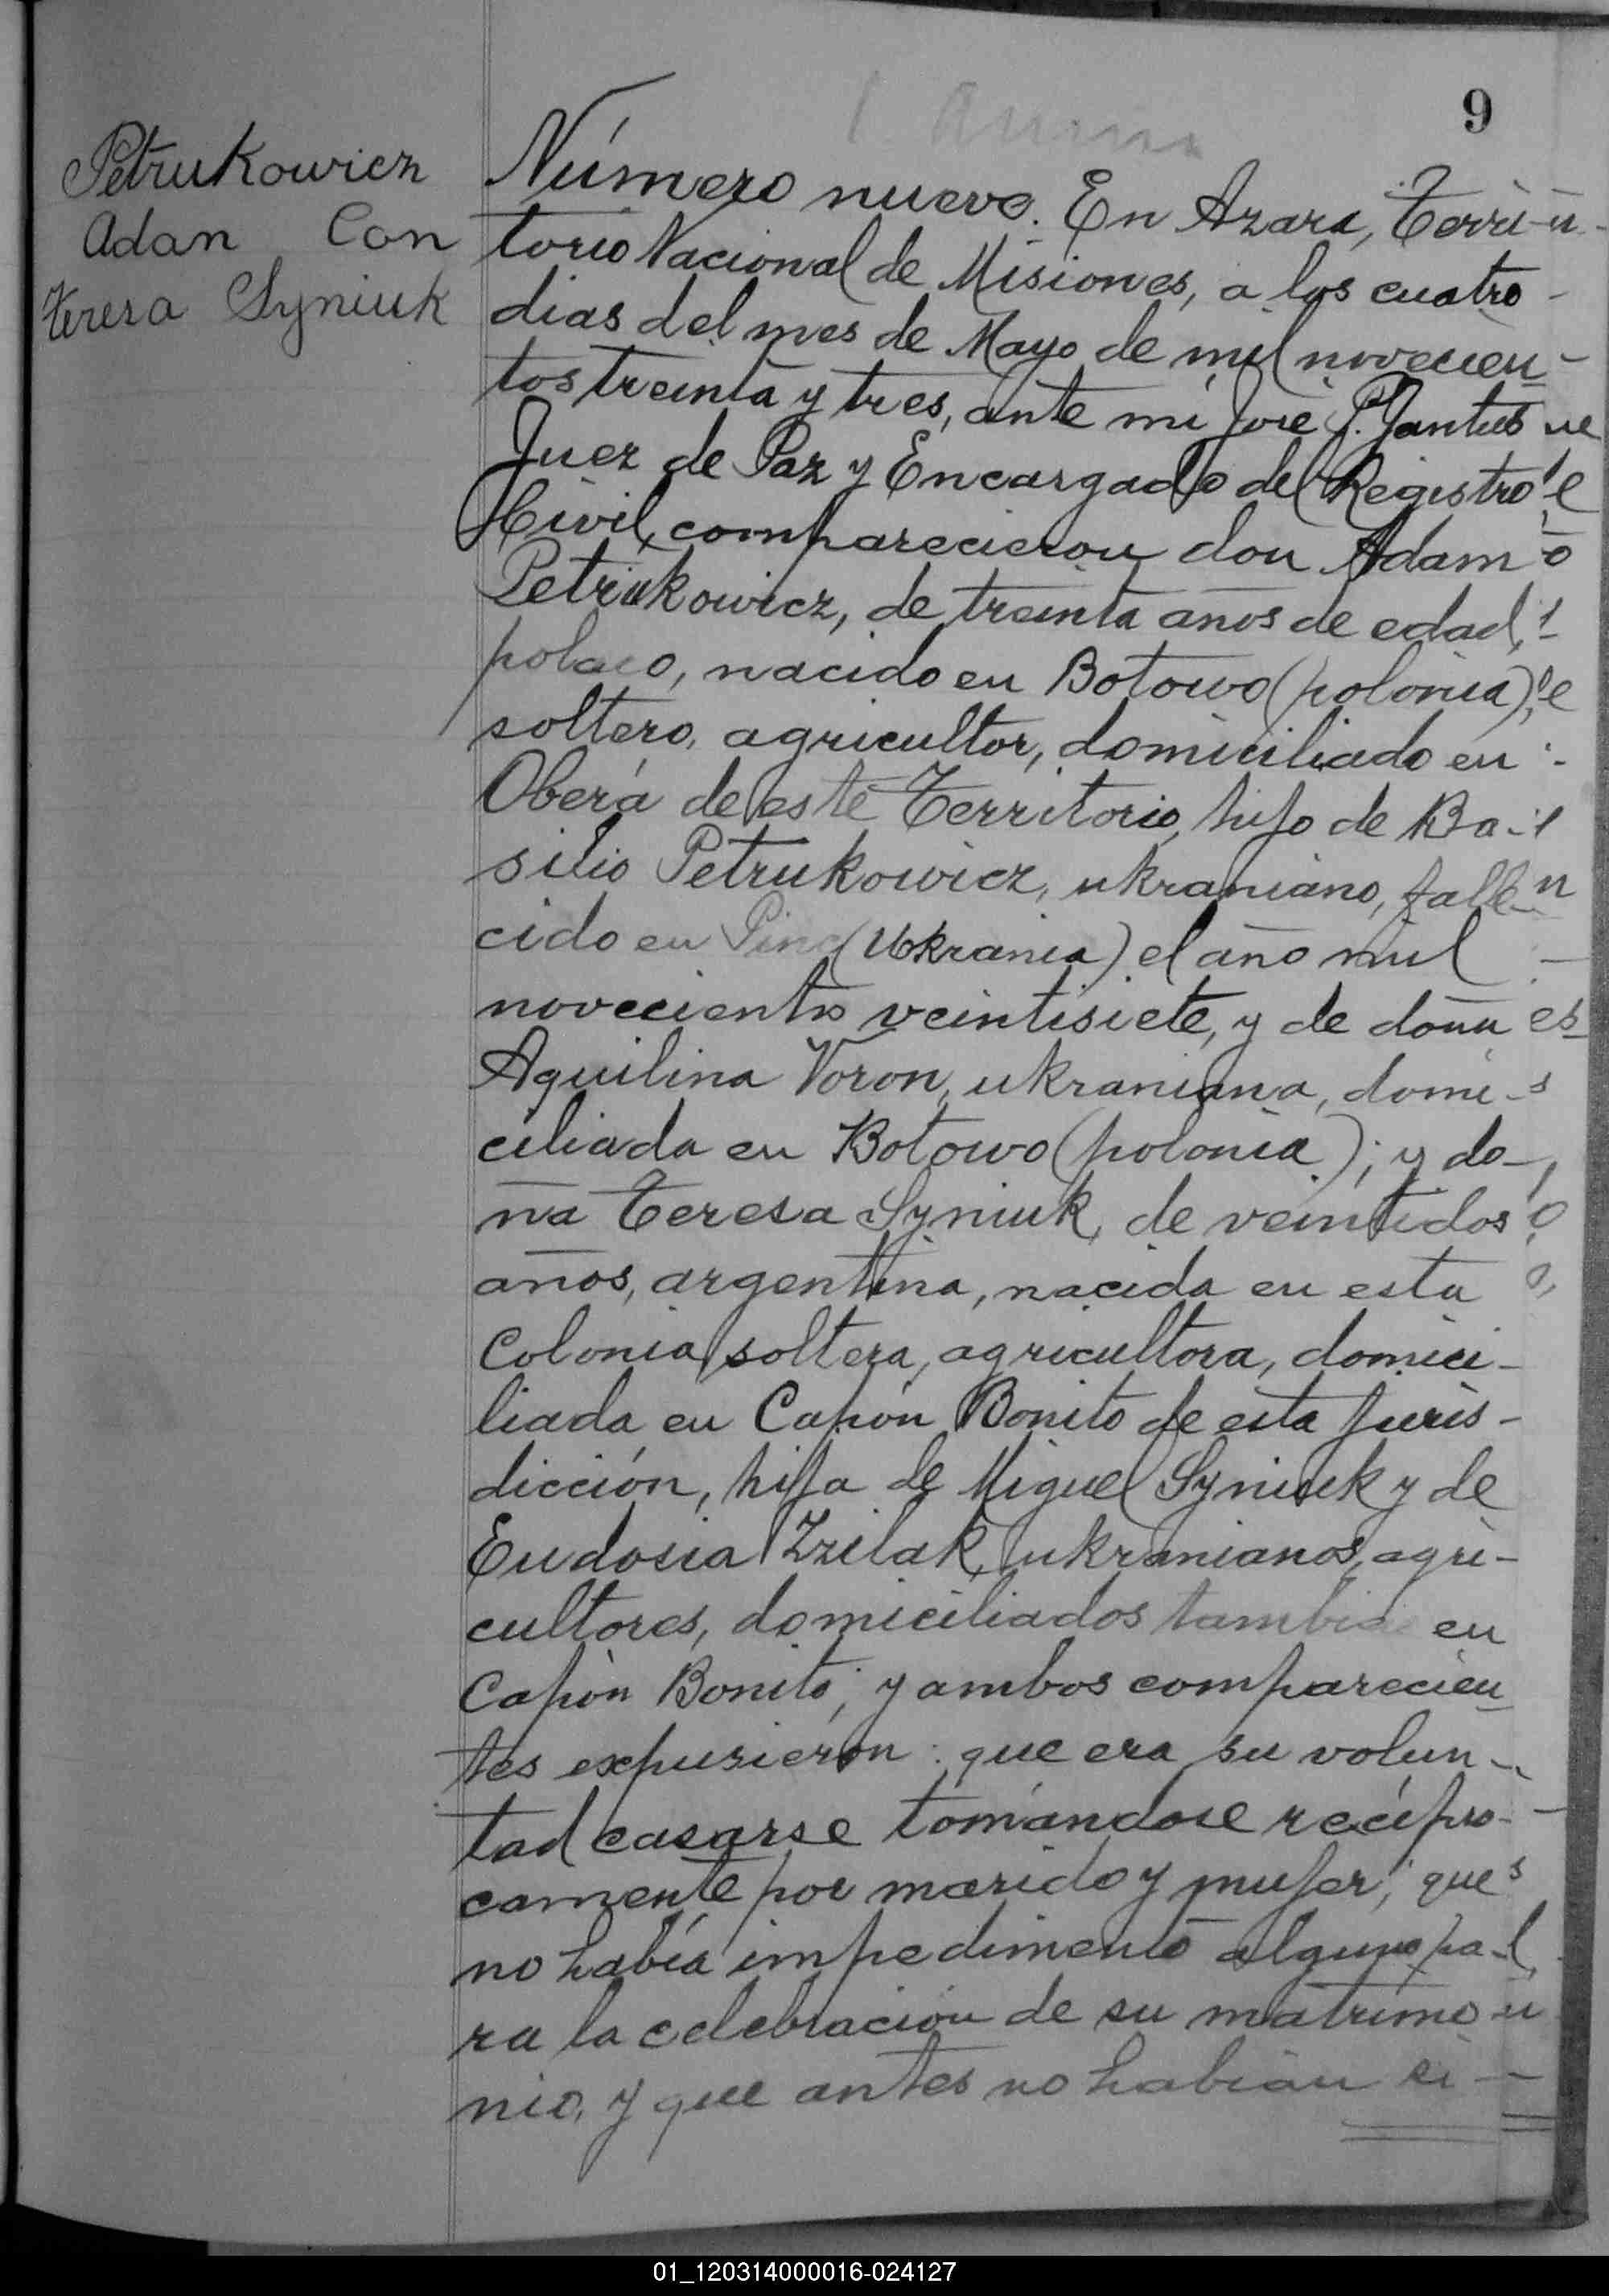 9
Petrukowicz
Adan Con
Teresa Syniuk
Número nueve. En Azara, Terri-
torio Nacional de Misiones, a los cuatro
dias del mes de Mayo de mil novecien-
tos treinta y tres, ante mi José P. Jantus
Juez de Paz y Encargado del Registro
Civil, comparecieron don Adam
Petrukowicz, de treinta años de edad,
polaco, nacido en Botowo (polonia),
soltero, agricultor, domiciliado en
Oberá de este Territorio, hijo de Ba-
silio Petrukowicz, ukraniano, falle-
cido en Pinc (Ukrania) el año mil
novecientos veintisiete, y de doña
Aquilina Voron, ukraniana, domi-
ciliada en Botowo (polonia); y do-
ña Teresa Syniuk, de veintidos
años, argentina, nacida en esta
Colonia, soltera, agricultora, domici-
liada en Capón Bonito de esta juris-
dicción, hija de Miguel Syniuk y de
Eudosia Zzilak, ukranianos, agri-
cultores, domiciliados tambien en
Capón Bonito; y ambos comparecien
tes expusierón: que era su volun-
tad casarse tomándose recípro-
camente por marido y mujer; que
no había impedimento alguno pa-
ra la celebración de su matrimo
nio, y que antes no habían si-
01_120314000016-024127